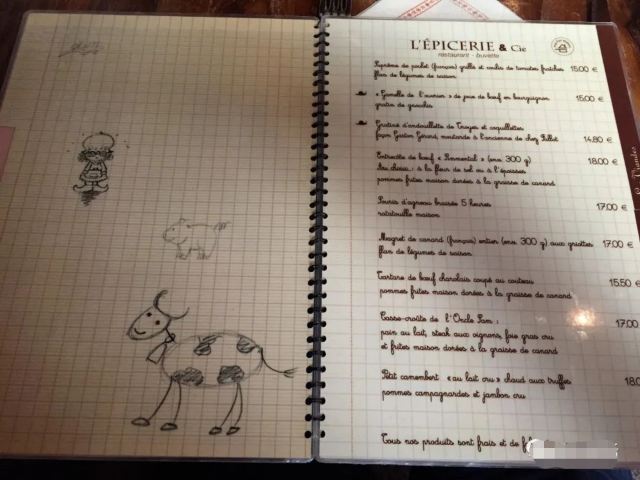 L'ÉPICERIE & Cie
restaurant - buvette
Suprême de poulet (français) grillé et coulis de tomates fraîches 15.00 €
flan de légumes de saison
« Gamelle de l'ouvrier » de joue de bœuf en bourguignon 15.00 €
gratin de gnocchis
Gratiné d'andouillette de Troyes et coquillettes
façon Gaston Gérard, moutarde à l'ancienne de chez Fallot 14.80 €
Entrecôte de bœuf « Simmental » (env. 300 g) 18.00 €
Au choix : à la fleur de sel ou à l'époisses
pommes frites maison dorées à la graisse de canard
Souris d'agneau braisée 5 heures 17.00 €
ratatouille maison
Magret de canard (français) entier (env. 300 g) aux griottes 17.00 €
flan de légumes de saison
Tartare de bœuf charolais coupé au couteau 15.50 €
pommes frites maison dorées à la graisse de canard
Casse-croûte de l'Oncle Sam : 17.00
pain au lait, steak aux oignons, foie gras cru
et frites maison dorées à la graisse de canard
Petit camembert « au lait cru » chaud aux truffes 18.0
pommes campagnardes et jambon cru
Tous nos produits sont frais et de f